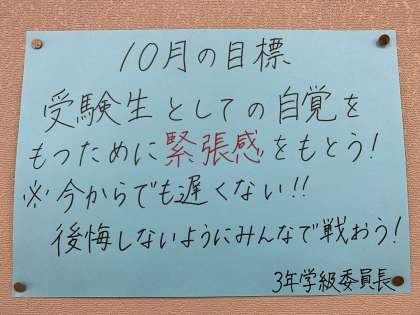 10月の目標
受験生としての自覚を
もつために緊張感をもとう!
※今からでも遅くない!!
後悔しないようにみんなで戦おう!
3年学級委員長